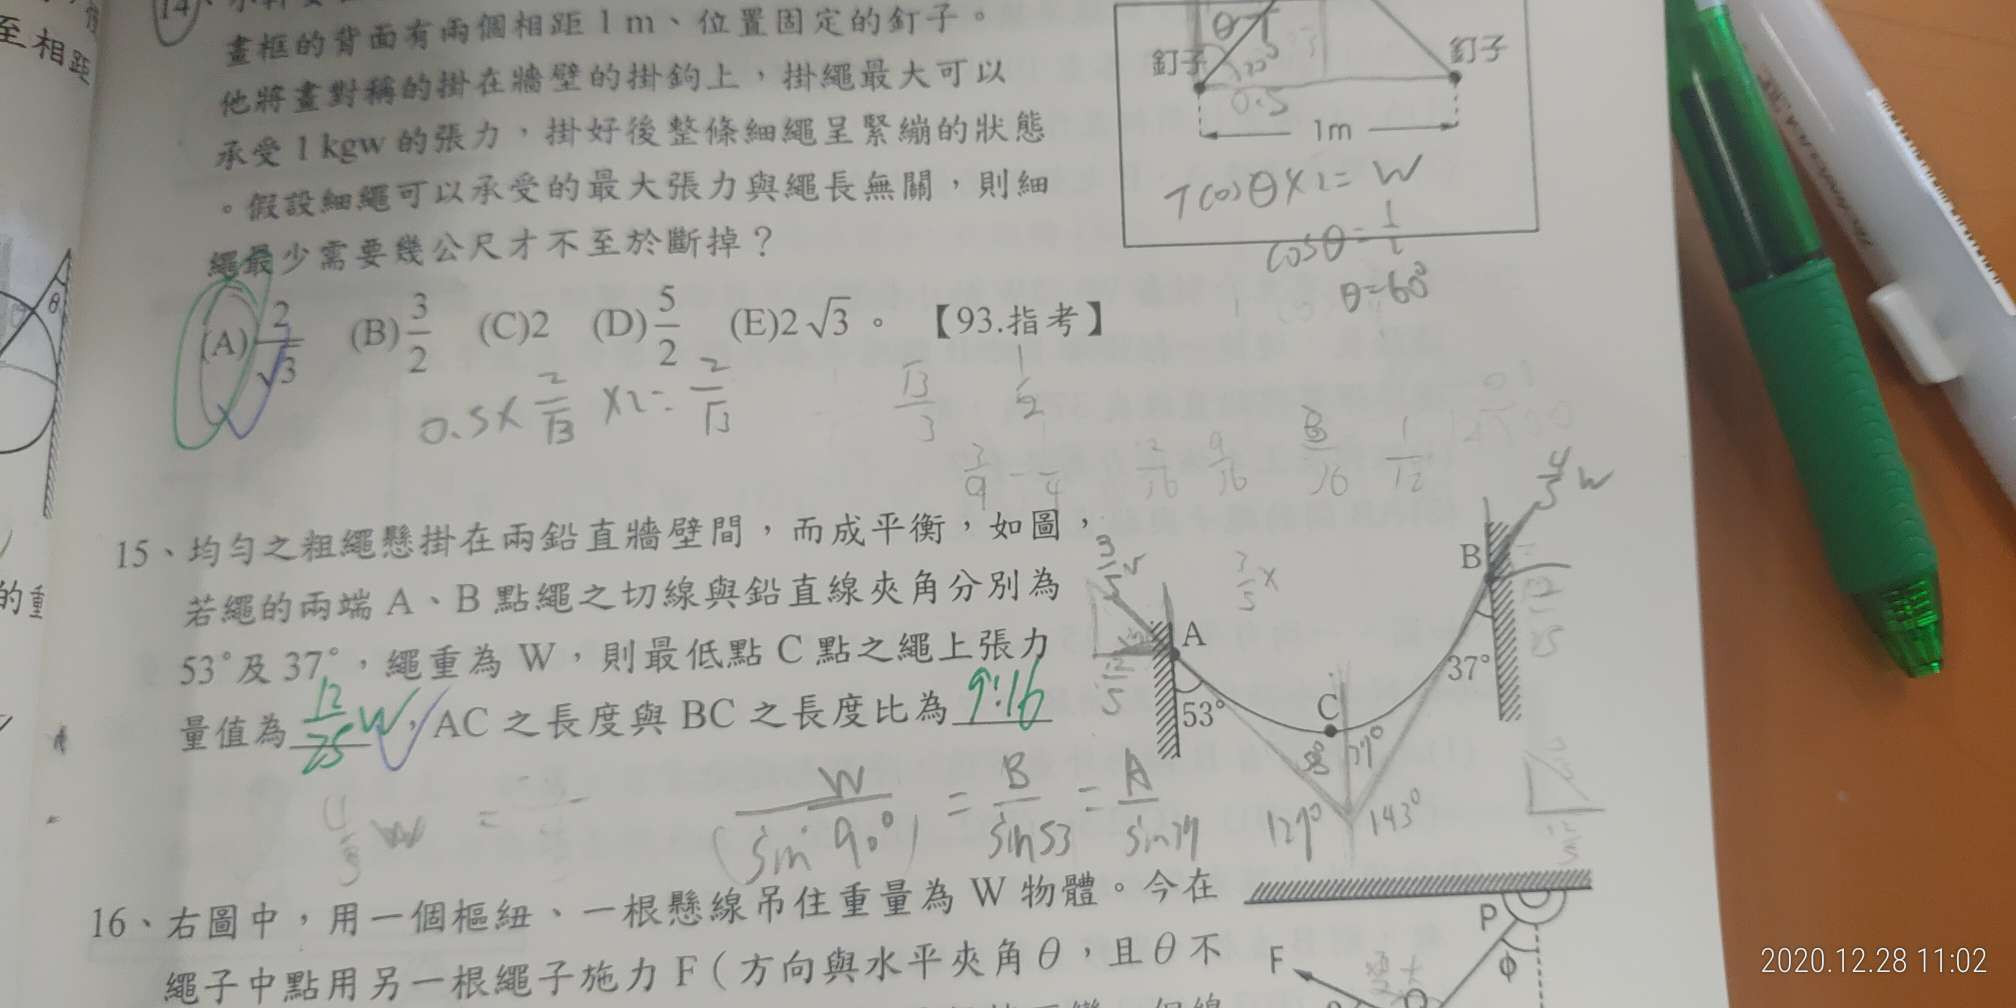 至相距
的重
14、
畫框的背面有兩個相距 1 m、位置固定的釘子。
他將畫對稱的掛在牆壁的掛鉤上，掛繩最大可以
承受 1 kgw 的張力，掛好後整條細繩呈緊繃的狀態
。假設細繩可以承受的最大張力與繩長無關，則細
繩最少需要幾公尺才不至於斷掉？
(A) 2/√3 (B) 3/2 (C)2 (D) 5/2 (E)2√3 。 【93.指考】
0.5× 2/√3 ×2= 2/√3
√3/3 1/2
θ
釘子 釘子
0.5
1m
Tcosθ×2=W
cosθ=1/2
θ=60°
15、均勻之粗繩懸掛在兩鉛直牆壁間，而成平衡，如圖，
若繩的兩端 A、B 點繩之切線與鉛直線夾角分別為
53°及 37°，繩重為 W，則最低點 C 點之繩上張力
量值為 12/25 W，AC 之長度與 BC 之長度比為 9:16
W/(sin 90°) = B/sin53 = A/sin37
4/5 W
A
B
C
53°
37°
37°
127° 143°
16、右圖中，用一個樞紐、一根懸線吊住重量為 W 物體。今在
繩子中點用另一根繩子施力 F（方向與水平夾角θ，且θ不
P
F
φ
2020.12.28 11:02